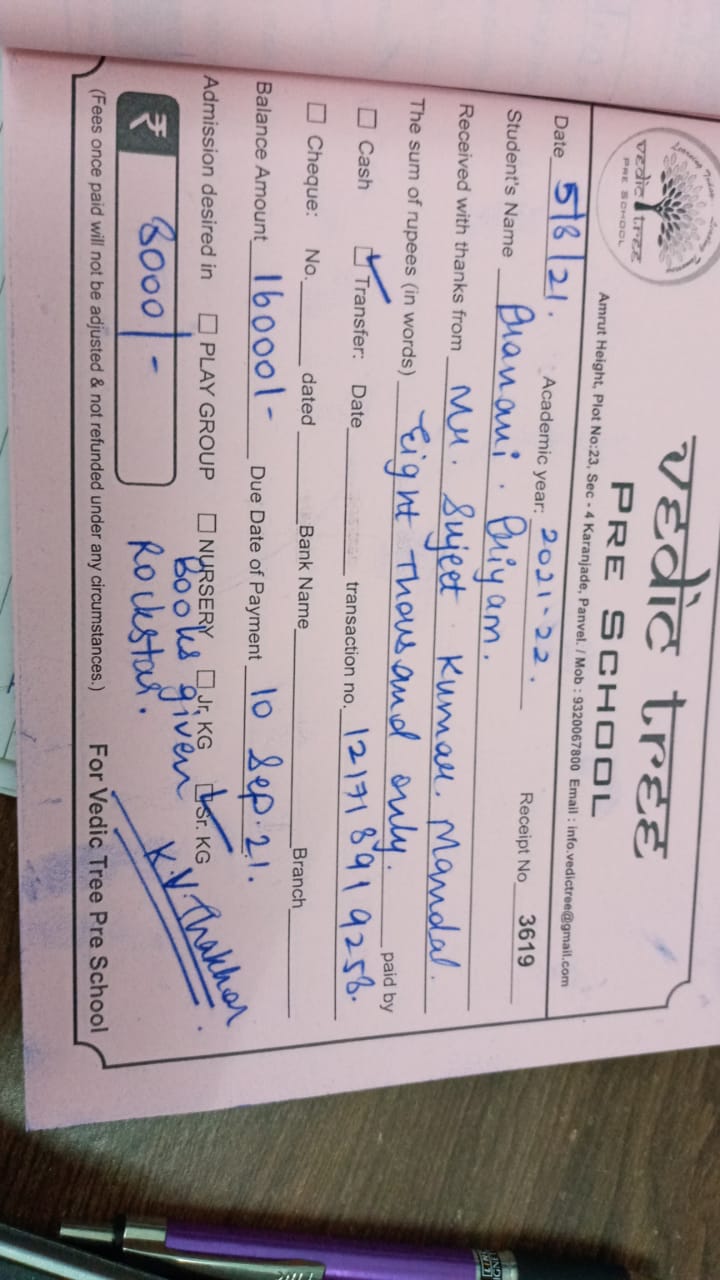 Learning Today
vedic tree
PRE SCHOOL
vedic tree
PRE SCHOOL
Amrut Height, Plot No:23, Sec - 4 Karanjade, Panvel. / Mob : 9320067800 Email : info.vedictree@gmail.com
Date 5/8/21. Academic year: 2021-22. Receipt No 3619
Student's Name Bhanavi. Priyam.
Received with thanks from Mr. Sujeet Kumar. Mandal.
The sum of rupees (in words) Eight Thousand only. paid by
Cash Transfer: Date transaction no. 121718919258.
Cheque: No. dated Bank Name Branch
Balance Amount 16000/- Due Date of Payment 10 Sep. 21.
Admission desired in PLAY GROUP NURSERY Jr. KG Sr. KG
₹ 8000/-
Books given
Rockstar.
K.V. Thakkar.
(Fees once paid will not be adjusted & not refunded under any circumstances.) For Vedic Tree Pre School